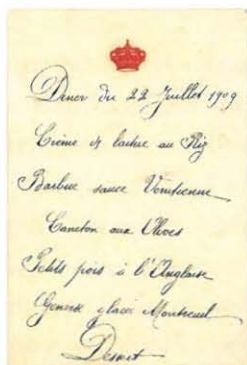 Diner du 22 Juillet 1909
Crème de laitue au Riz
Barbue sauce Vénitienne
Caneton aux Olives
Petits pois à l'Anglaise
glacée Montreuil
Dessert